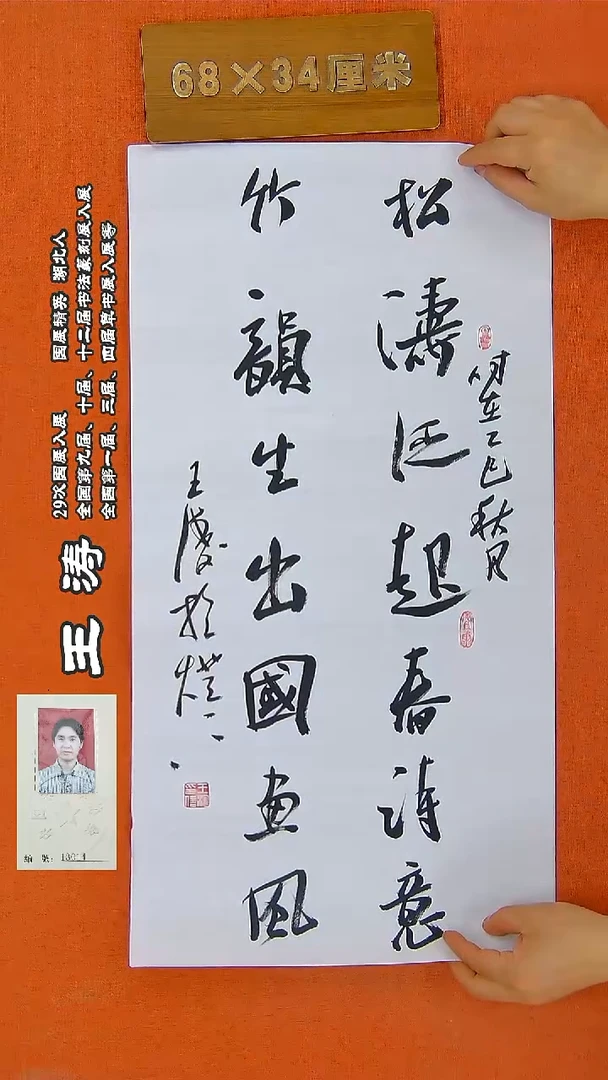 68×34厘米
松濤泛起春诗意
时在乙巳秋月
竹韻生出國画風
王涛
29次国展入展 国展精英 湖北人
全国第九届、十届、十二届书法篆刻展入展
全国第一届、三届、四届草书展入展等
编号: